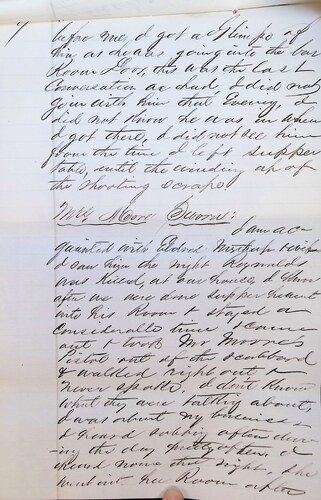 7
before me, I got a Glimps of
him as he was going into the Bar
Room Door, this was the last
Conversation we had, I did not
go in with him that Evening, I
did not know he was in when
I got there, I did not see him
from the time I left supper
table, until the winding up of
the shooting scrape
Mrs Moore Sworn:
I am ac-
quainted with Edward
I saw him the night Reynolds
was killed, at our house, I saw
after we were done supper he went
into his Room & stayed a
considerable time & came
out & took Mr Moore's
Pistol out of the scabbard
& walked right out &
never spoke, I don't know
what they were talking about,
I was about my business
I heard after dur-
ing the day pretty often, I
heard none that night, she
went into her Room after